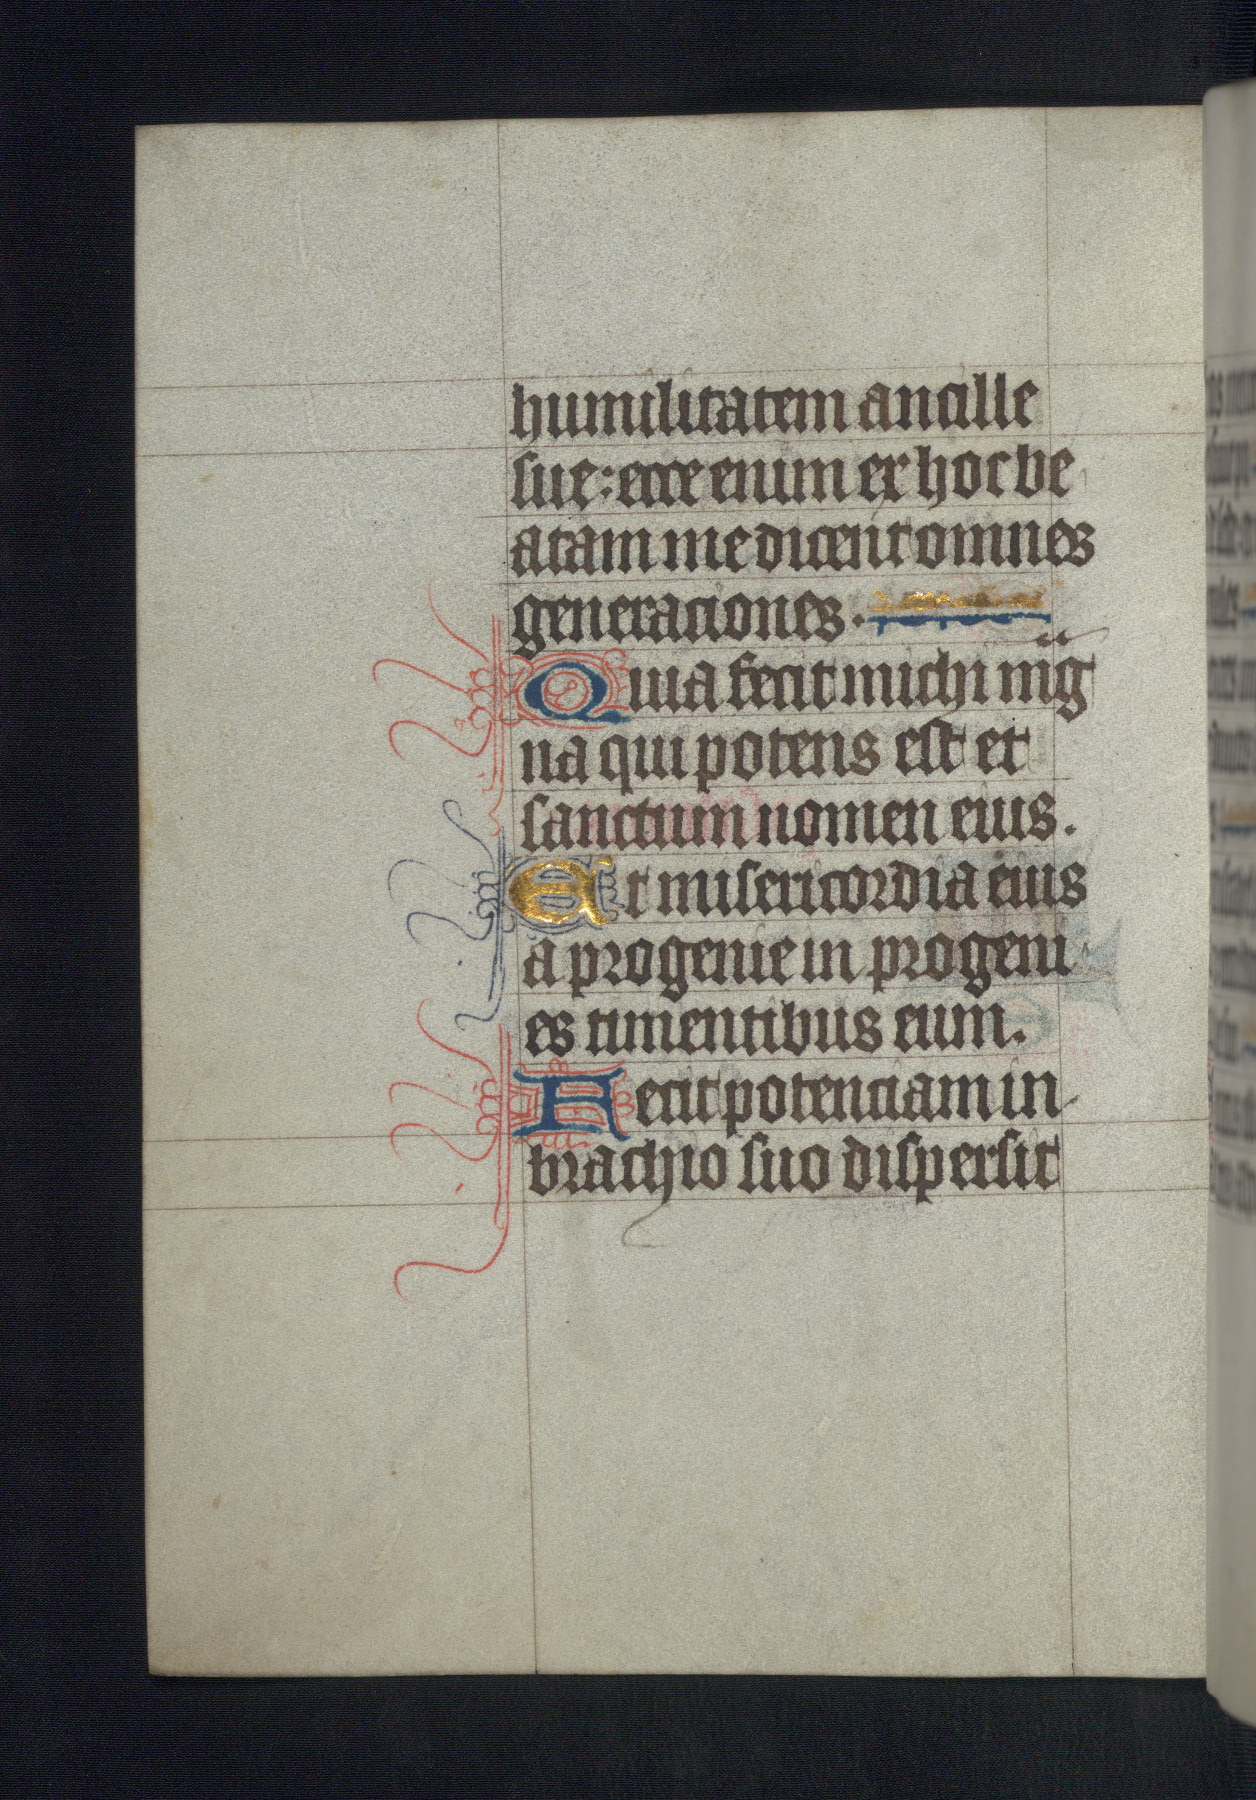 humilitatem ancille
sue: ecce enim ex hoc be
atam me dicent omnes
generaciones.
Quia fecit michi mag
na qui potens est et
sanctum nomen eius.
Et misericordia eius
a progenie in progeni
es timentibus eum.
Fecit potenciam in
brachio suo dispersit